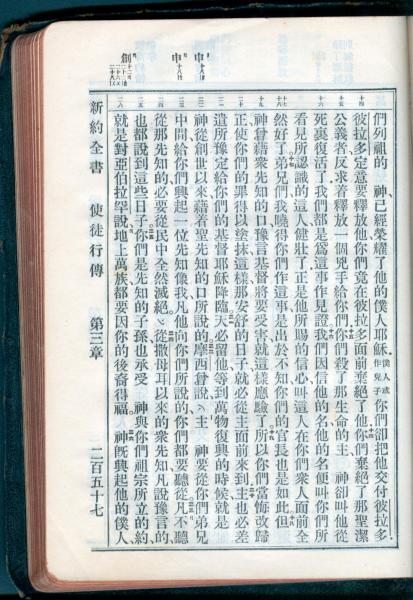 申
申
創
們列祖的　神已經榮耀了他的僕人耶穌僕人或作兒子你們卻把他交付彼拉多
彼拉多定意要釋放他你們竟在彼拉多面前棄絕了他你們棄絕了那聖潔
公義者反求着釋放一個兇手給你們你們殺了那生命的主　神卻叫他從
死裏復活了我們都是爲這事作見證我們因信他的名他的名便叫你們所
看見所認識的這人健壯了正是他所賜的信心叫這人在你們衆人面前全
然好了弟兄們我曉得你們作這事是出於不知你們的官長也是如此但
神曾藉衆先知的口豫言基督將要受害就這樣應驗了所以你們當悔改歸
正使你們的罪得以塗抹這樣那安舒的日子就必從主面前來到主也必差
遣所豫定給你們的基督耶穌降臨天必留他等到萬物復興的時候就是
神從創世以來藉着聖先知的口所說的摩西曾說主　神要從你們弟兄
中間給你們興起一位先知像我凡他向你們所說的你們都要聽從凡不聽
從那先知的必要從民中全然滅絕從撒母耳以來的衆先知凡說豫言的
也都說到這些日子你們是先知的子孫也承受　神與你們祖宗所立的約
就是對亞伯拉罕說地上萬族都要因你的後裔得福　神既興起他的僕人
新約全書　使徒行傳　第三章　二百五十七